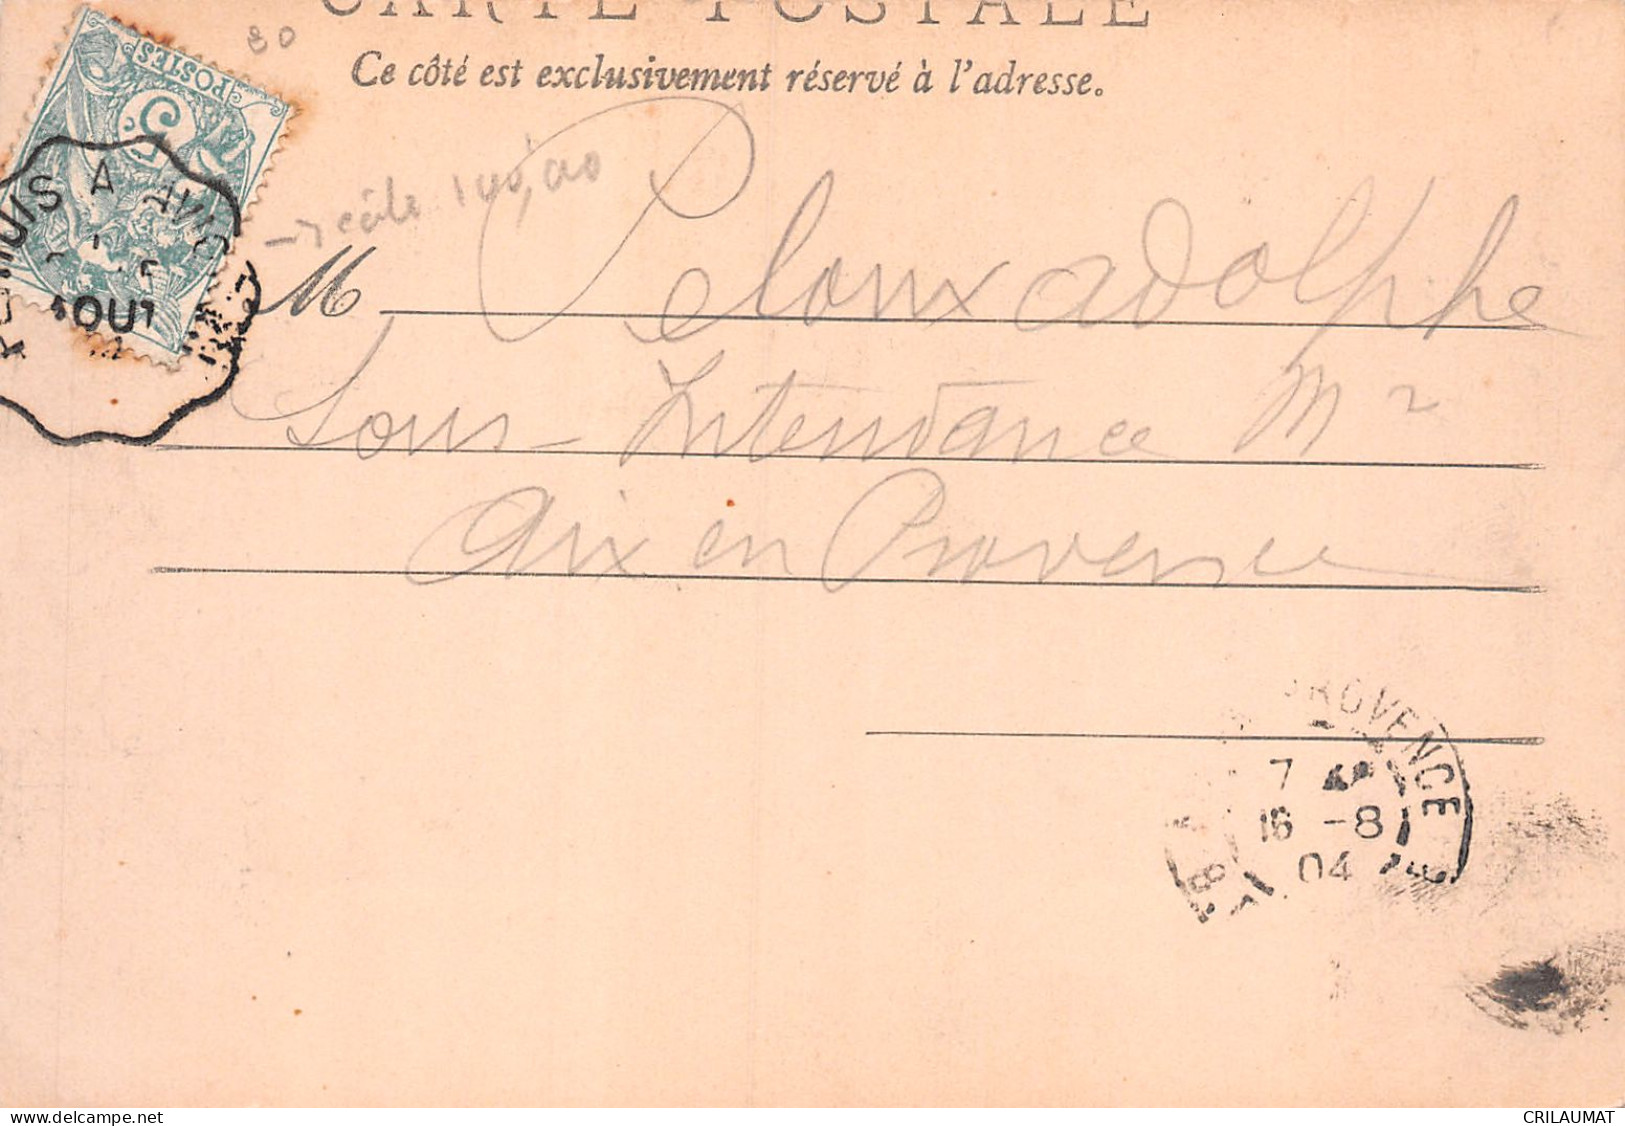 CARTE POSTALE
Ce côté est exclusivement réservé à l'adresse.
80
POSTES
5
AOUT
M Peloux adolphe
Sous-Intendance Mre
Aix en Provence
PROVENCE
7
16 -8
04
delcampe.net
CRILAUMAT